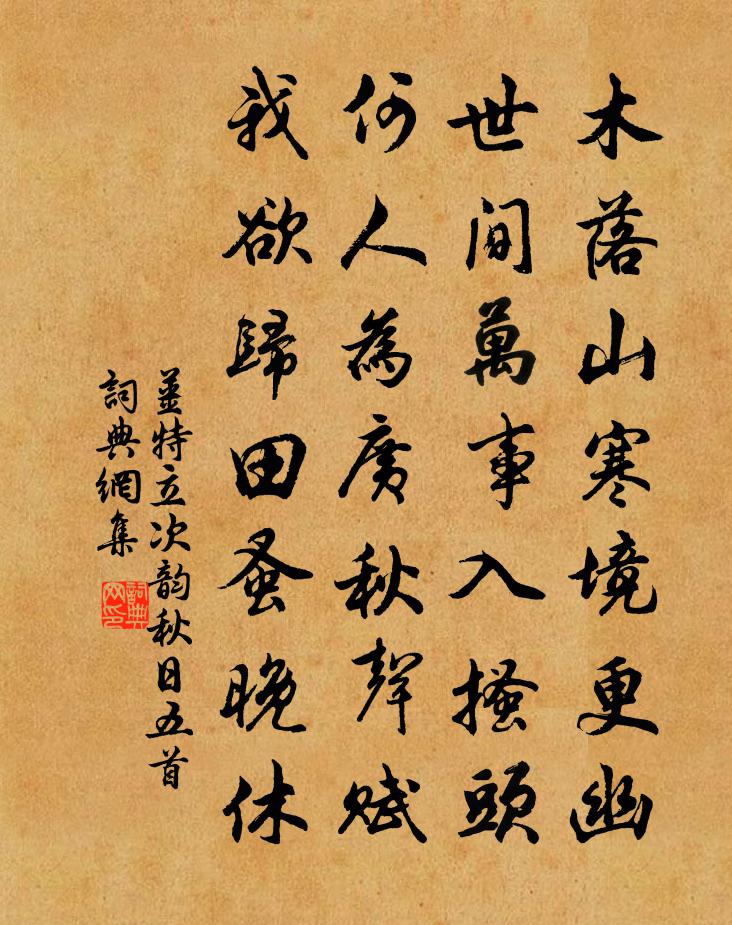 木落山寒境更幽
世間萬事入搔頭
何人為廣秋聲賦
我欲歸田蚤晚休
薑特立次韵秋日五首
詞典網集
詞典网印